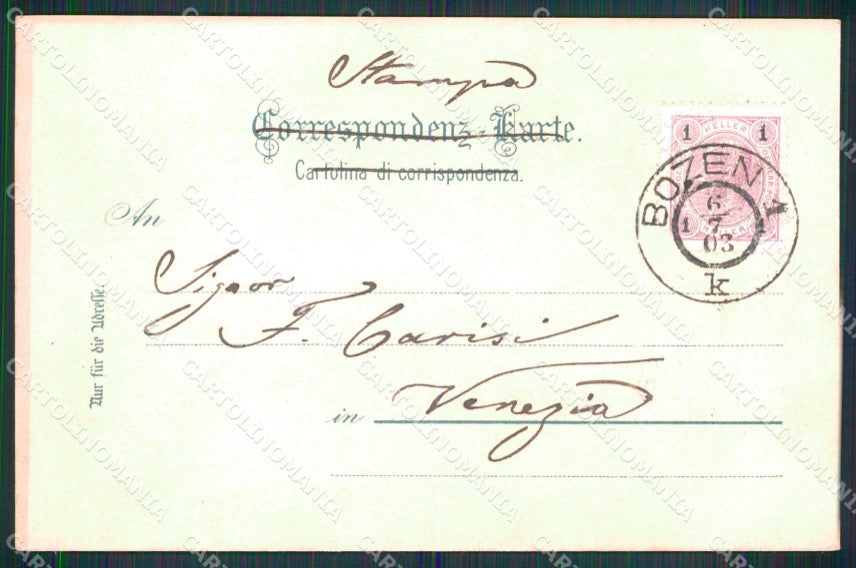 Stampa
Correspondenz-Karte.
Cartolina di corrispondenza.
1 HELLER 1
BOZEN 1
6
1 7 1
03
k
An
Signor
F. Carisi
in Venezia
Nur für die Adresse.
CARTOLINOMANIA